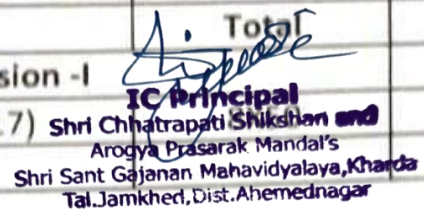 Total
sion -I
IC Principal
.7) Shri Chhatrapati Shikshan and
Arogya Prasarak Mandal's
Shri Sant Gajanan Mahavidyalaya,Kharda
Tal.Jamkhed,Dist.Ahemednagar